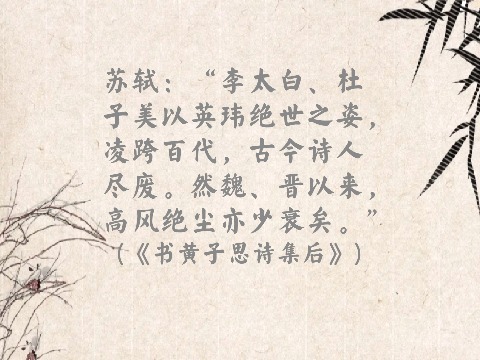 苏轼：“李太白、杜
子美以英玮绝世之姿，
凌跨百代，古今诗人
尽废。然魏、晋以来，
高风绝尘亦少衰矣。”
（《书黄子思诗集后》）